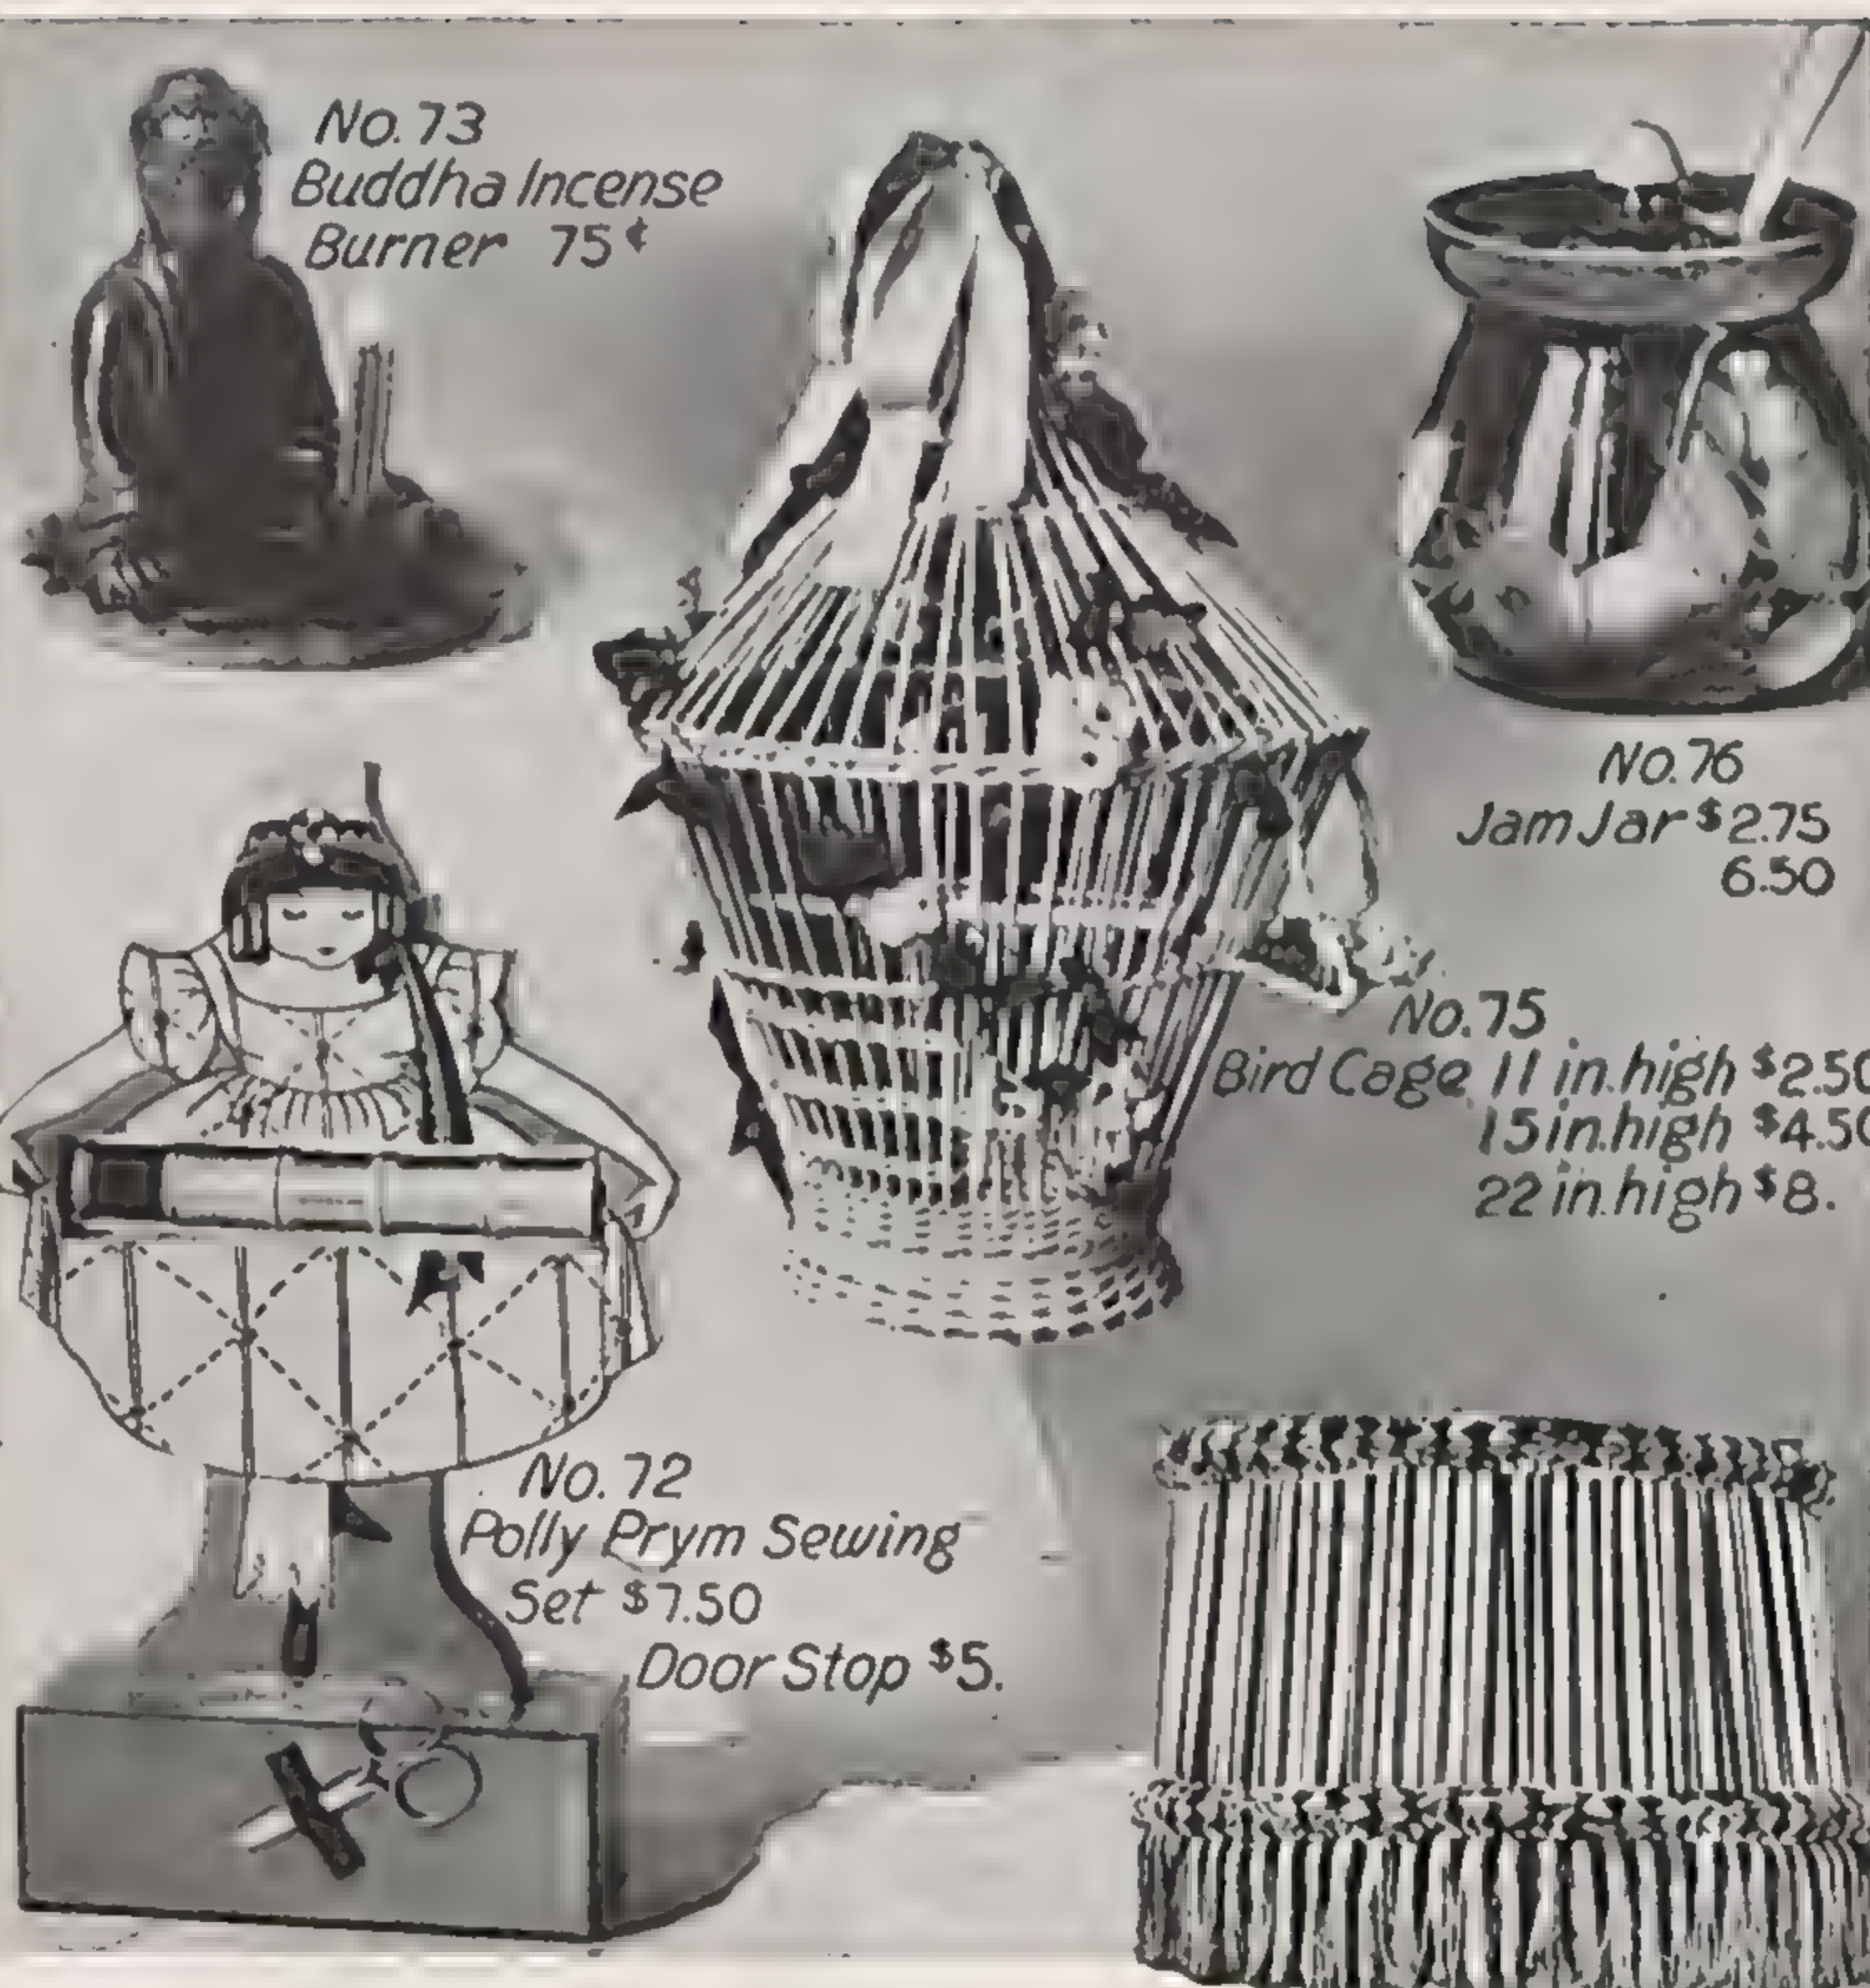 No. 73
Buddha Incense
Burner 75¢
No. 76
Jam Jar $2.75
6.50
No. 75
Bird Cage 11 in. high $2.50
15 in. high $4.50
22 in. high $8.
No. 72
Polly Prym Sewing
Set $7.50
Door Stop $5.